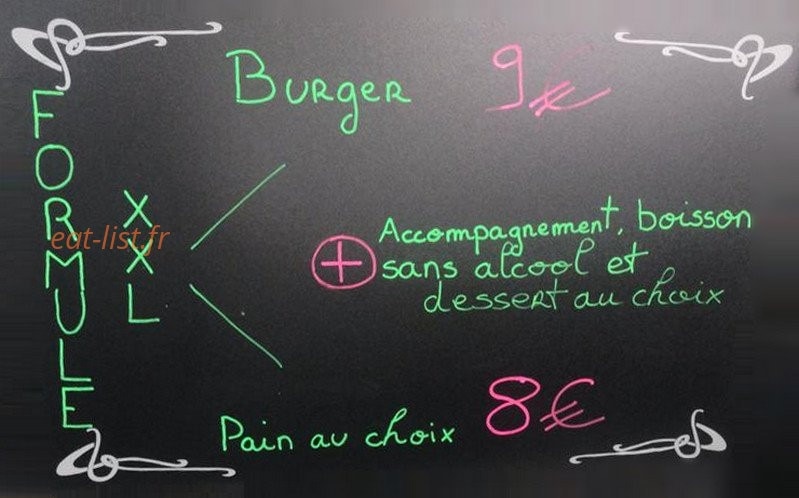 FORMULE
XXL
Burger 9€
+ Accompagnement, boisson
sans alcool et
dessert au choix
Pain au choix 8€
eat-list.fr